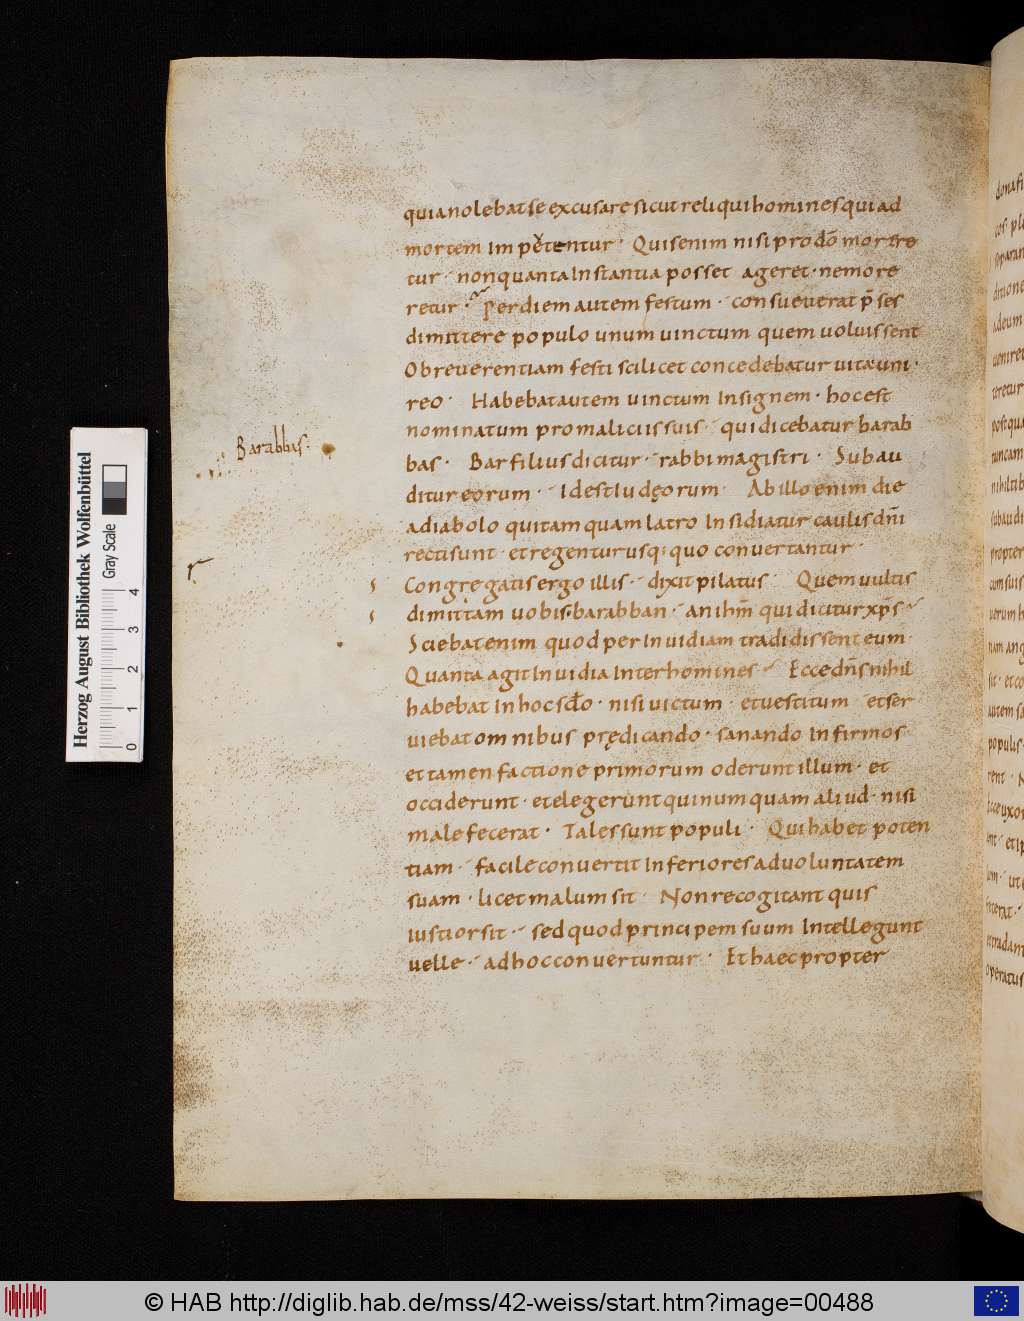 quia nolebat se excusare sicut reliqui homines qui ad
mortem impetentur · Quis enim nisi pro dõ
tur · non quanta instantia posset ageret · ne more
retur · Per diem autem festum · consueverat p̃ses
dimittere populo unum uinctum quem uoluissent
Ob reverentiam festi scilicet concedebatur uita uni ·
reo · Habebat autem uinctum Insignem · hoc est
nominatum pro maliciis suis · qui dicebatur barab
bas · Bar filius dicitur · rabbi magistri · Subau
ditur eorum · Id est Iudęorum · Ab illo enim die
a diabolo qui tamquam latro Insidiatur caulis dñi
recti sunt · et regentur usq: quo convertantur ·
Congregatis ergo illis · dixit pilatus · Quem uultis
dimittam uobis · barabban · an ihm̃ qui dicitur xp̃s
Sciebat enim quod per Inuidiam tradidissent eum ·
Quanta agit Inuidia Inter homines · Ecce dñs nihil
habebat In hoc sc̃lo · nisi uictum · et uestitum · et ser
uiebat omnibus prędicando · sanando Infirmos ·
et tamen factione primorum oderunt illum · et
occiderunt · et elegerunt qui numquam aliud · nisi
male fecerat · Tales sunt populi · Qui habet poten
tiam · facile convertit Inferiores ad uoluntatem
suam · licet malum sit · Non recogitant quis
iustior sit · sed quod principem suum Intellegunt
uelle · ad hoc convertuntur · Et haec propter
Barabbas :
r
dona fi
cos · ple
separan
ditione
ad eum
ueniret
teretur
postqua
tuncam
nihil tib
subaudi
propter
cum suis
uerum h
nam ang
sit · et co
autem sa
populis ·
rent · N
Ecce uxor
nt · et ip
lum · ut e
fecerat ·
et tradant
operatus
Herzog August Bibliothek Wolfenbüttel
Gray Scale
0 1 2 3 4
© HAB http://diglib.hab.de/mss/42-weiss/start.htm?image=00488